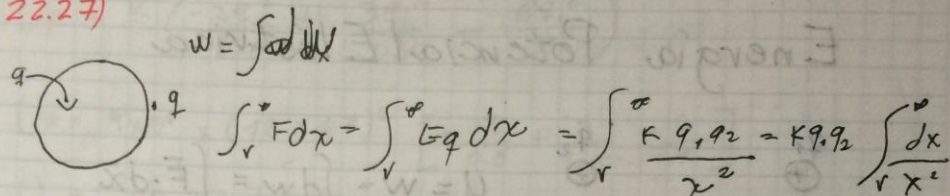 22.27)
w = ∫ dx
q
q
∫_r^∞ Fdx = ∫_r^∞ Eq dx = ∫_r^∞ K q₁q₂ / x² = K q₁q₂ ∫_r^∞ dx / x²